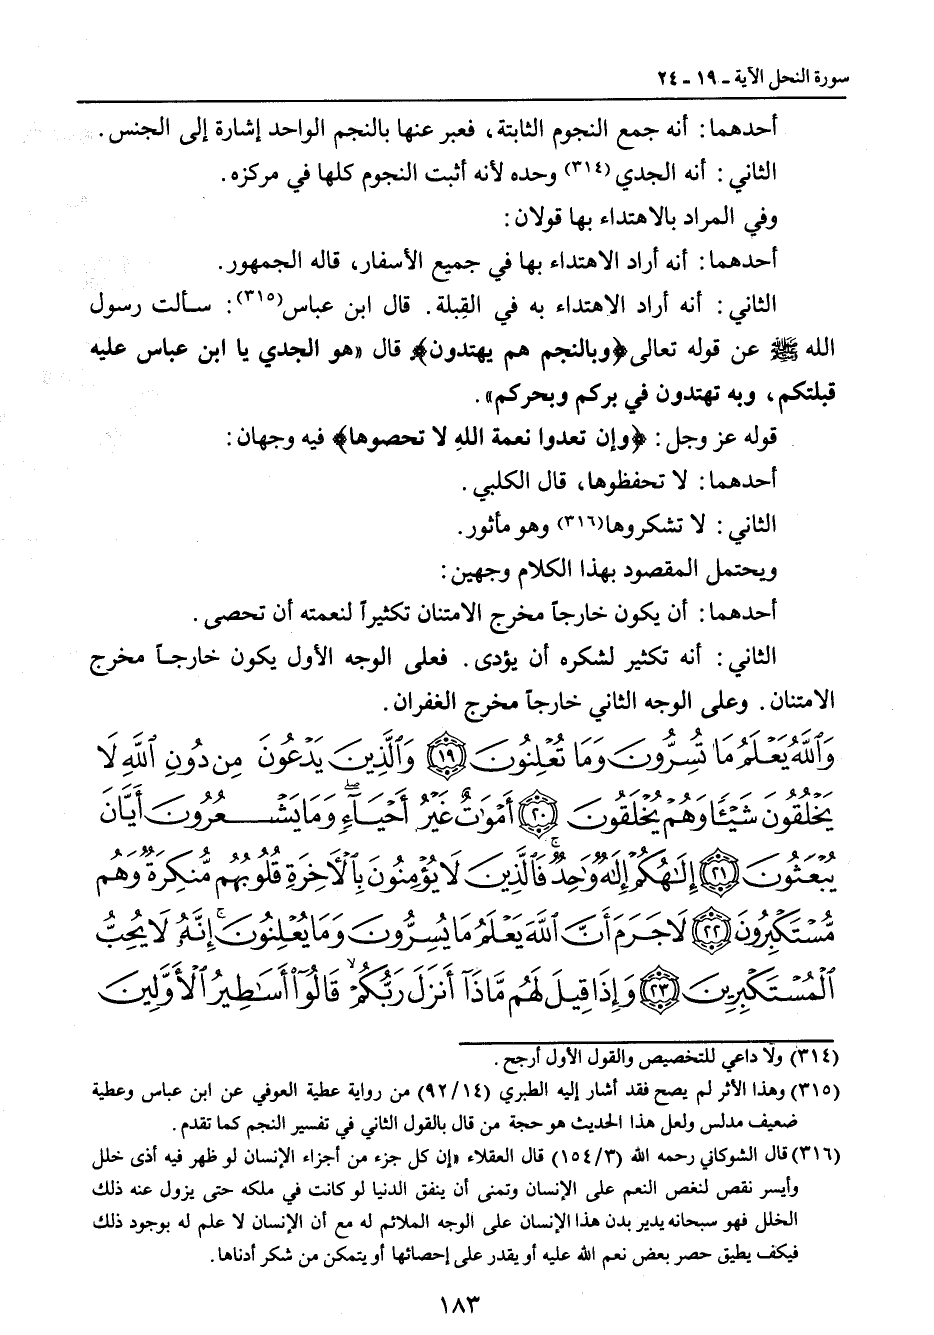 سورة النحل الآية ـ ١٩ ـ ٢٤
أحدهما: أنه جمع النجوم الثابتة، فعبر عنها بالنجم الواحد إشارة إلى الجنس.
الثاني: أنه الجدي(٣١٤) وحده لأنه أثبت النجوم كلها في مركزه.
وفي المراد بالاهتداء بها قولان:
أحدهما: أنه أراد الاهتداء بها في جميع الأسفار، قاله الجمهور.
الثاني: أنه أراد الاهتداء به في القِبلة. قال ابن عباس(٣١٥): سألت رسول
الله ﷺ عن قوله تعالى ﴿وبالنجم هم يهتدون﴾ قال «هو الجدي يا ابن عباس عليه
قبلتكم، وبه تهتدون في بركم وبحركم».
قوله عز وجل: ﴿وإن تعدوا نعمة اللهِ لا تحصوها﴾ فيه وجهان:
أحدهما: لا تحفظوها، قال الكلبي.
الثاني: لا تشكروها(٣١٦) وهو مأثور.
ويحتمل المقصود بهذا الكلام وجهين:
أحدهما: أن يكون خارجاً مخرج الامتنان تكثيراً لنعمته أن تحصى.
الثاني: أنه تكثير لشكره أن يؤدى. فعلى الوجه الأول يكون خارجاً مخرج
الامتنان. وعلى الوجه الثاني خارجاً مخرج الغفران.
وَٱللَّهُ يَعْلَمُ مَا تُسِرُّونَ وَمَا تُعْلِنُونَ ﴿١٩﴾ وَٱلَّذِينَ يَدْعُونَ مِن دُونِ ٱللَّهِ لَا
يَخْلُقُونَ شَيْـًٔا وَهُمْ يُخْلَقُونَ ﴿٢٠﴾ أَمْوَٰتٌ غَيْرُ أَحْيَآءٍ ۖ وَمَا يَشْعُرُونَ أَيَّانَ
يُبْعَثُونَ ﴿٢١﴾ إِلَٰهُكُمْ إِلَٰهٌ وَٰحِدٌ ۚ فَٱلَّذِينَ لَا يُؤْمِنُونَ بِٱلْأَخِرَةِ قُلُوبُهُم مُّنكِرَةٌ وَهُم
مُّسْتَكْبِرُونَ ﴿٢٢﴾ لَا جَرَمَ أَنَّ ٱللَّهَ يَعْلَمُ مَا يُسِرُّونَ وَمَا يُعْلِنُونَ ۚ إِنَّهُۥ لَا يُحِبُّ
ٱلْمُسْتَكْبِرِينَ ﴿٢٣﴾ وَإِذَا قِيلَ لَهُم مَّاذَآ أَنزَلَ رَبُّكُمْ ۙ قَالُوٓا۟ أَسَٰطِيرُ ٱلْأَوَّلِينَ
(٣١٤) ولا داعي للتخصيص والقول الأول أرجح.
(٣١٥) وهذا الأثر لم يصح فقد أشار إليه الطبري (٩٢/١٤) من رواية عطية العوفي عن ابن عباس وعطية
ضعيف مدلس ولعل هذا الحديث هو حجة من قال بالقول الثاني في تفسير النجم كما تقدم.
(٣١٦) قال الشوكاني رحمه الله (١٥٤/٣) قال العقلاء «إن كل جزء من أجزاء الإنسان لو ظهر فيه أذى خلل
وأيسر نقص لنغص النعم على الإنسان وتمنى أن ينفق الدنيا لو كانت في ملكه حتى يزول عنه ذلك
الخلل فهو سبحانه يدير بدن هذا الإنسان على الوجه الملائم له مع أن الإنسان لا علم له بوجود ذلك
فيكف يطيق حصر بعض نعم الله عليه أو يقدر على إحصائها أو يتمكن من شكر أدناها.
١٨٣